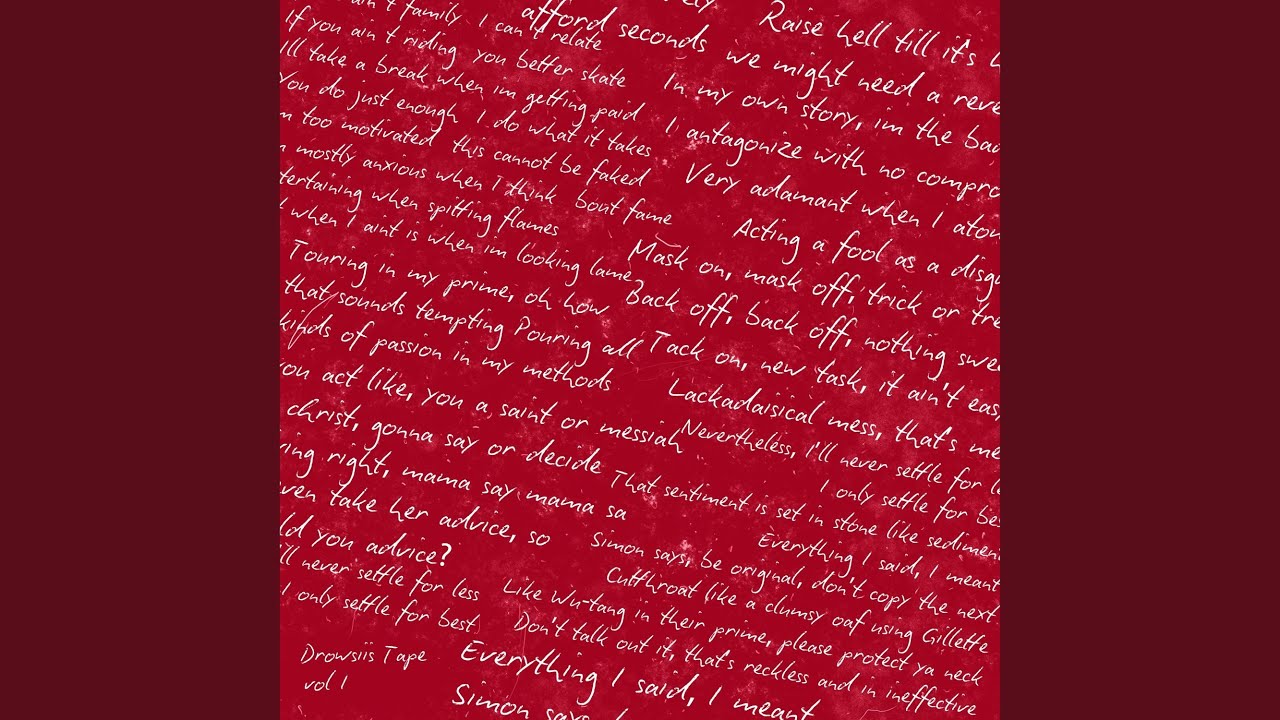 ain't family I can't relate
If you ain't riding you better skate
Ill take a break when im getting paid
You do just enough I do what it takes
m too motivated this cannot be faked
mostly anxious when I think bout fame
tertaining when spitting flames
when I aint is when im looking lame
Touring in my prime, oh how
that sounds tempting Pouring all
kinds of passion in my methods
ou act like, you a saint or messiah
christ, gonna say or decide
ing right, mama say mama sa
ven take her advice, so
ld you advice?
ll never settle for less
I only settle for best
Drowsiis Tape
vol 1
Raise hell till it's
afford seconds we might need a reve
In my own story, im the ba
I antagonize with no compro
Very adamant when I aton
Acting a fool as a disgu
Mask on, mask off, trick or tre
Back off, back off, nothing swe
Tack on, new task, it ain't eas
Lackadaisical mess, that's me
Nevertheless, I'll never settle for le
I only settle for be
That sentiment is set in stone like sedimen
Everything I said, I meant
Simon says, be original, don't copy the next
Cutthroat like a clumsy oaf using Gillette
Like Wu-tang in their prime, please protect ya neck
Don't talk out it, that's reckless and in ineffective
Everything I said, I meant
Simon says